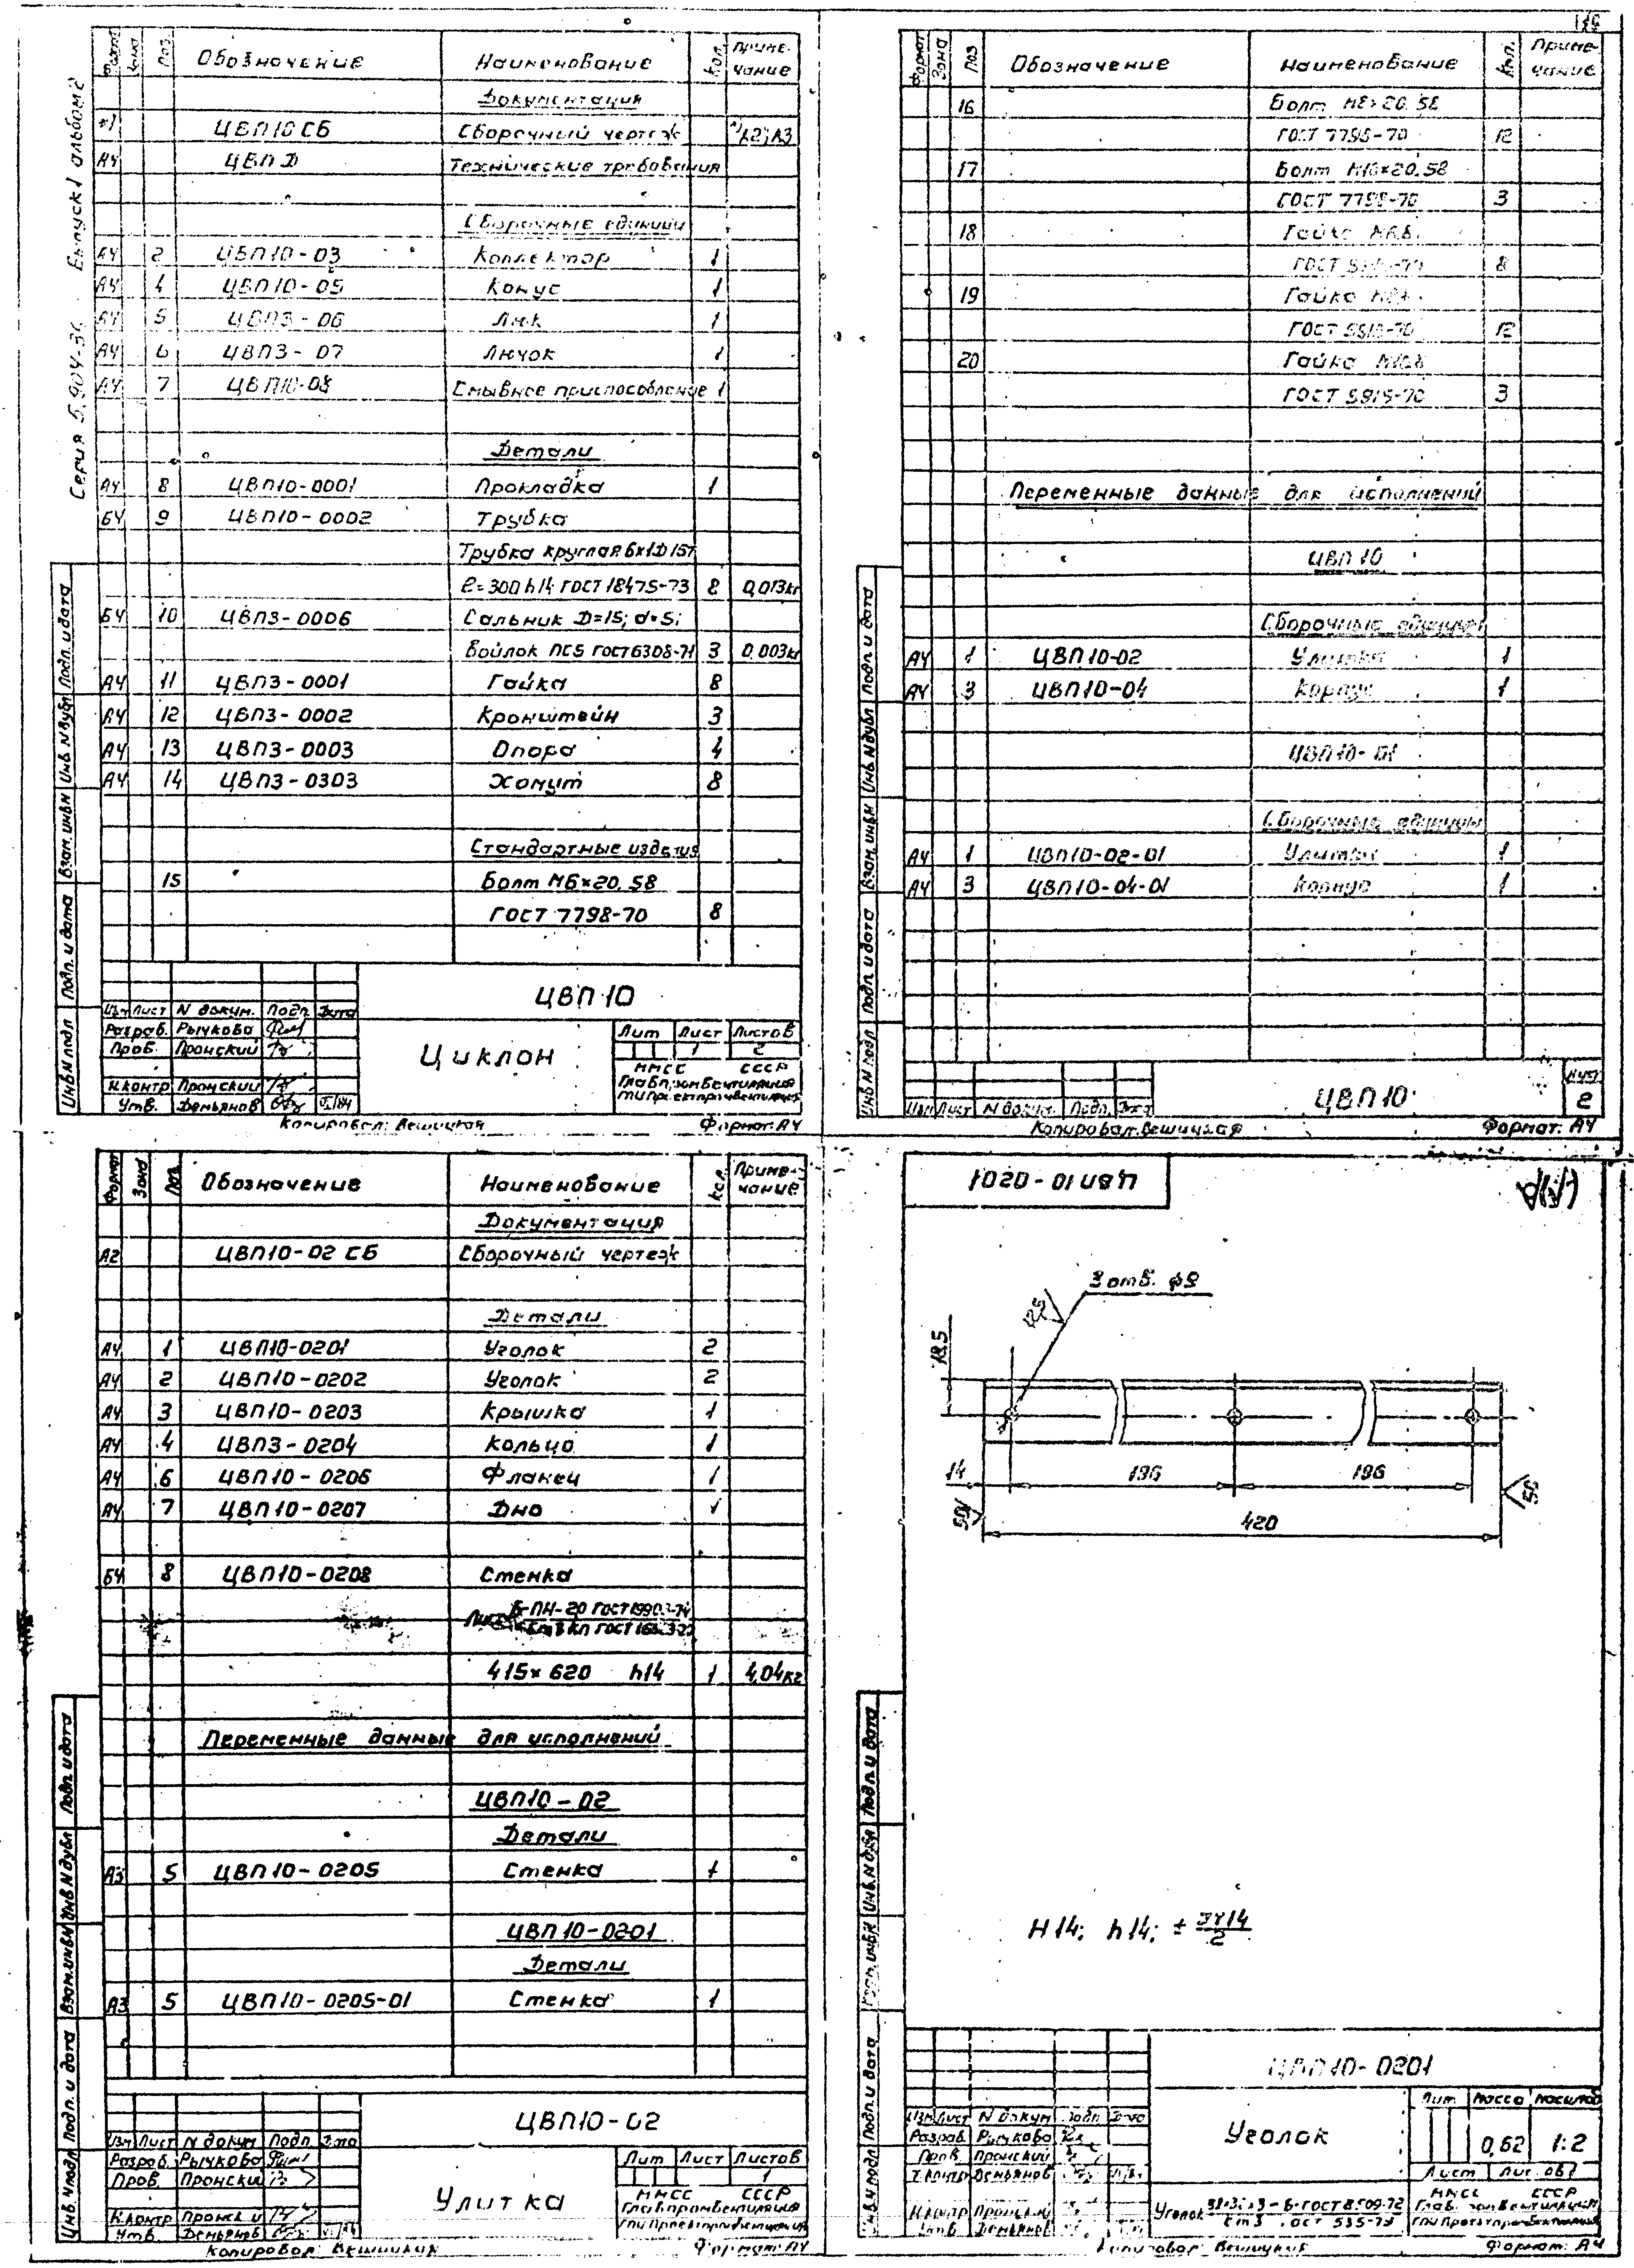 Серия 5.904-36 Выпуск 1 альбом 2
Формат Зона Поз. Обозначение Наименование Кол. Примечание
Документация
*) ЦВП10 СБ Сборочный чертеж *) А2; А3
А4 ЦВП Д Технические требования
Сборочные единицы
А4 2 ЦВП10-03 Коллектор 1
А4 4 ЦВП10-05 Конус 1
А4 5 ЦВП3-06 Люк 1
А4 6 ЦВП3-07 Лючок 1
А4 7 ЦВП10-08 Смывное приспособление 1
Детали
А4 8 ЦВП10-0001 Прокладка 1
БЧ 9 ЦВП10-0002 Трубка
Трубка круглая 6х1Д15т
ℓ=300 h14 ГОСТ 18475-73 8 0,013кг
БЧ 10 ЦВП3-0006 Сальник D=15; d=5;
Войлок ПС5 ГОСТ 6308-71 3 0,003кг
А4 11 ЦВП3-0001 Гайка 8
А4 12 ЦВП3-0002 Кронштейн 3
А4 13 ЦВП3-0003 Опора 4
А4 14 ЦВП3-0303 Хомут 8
Стандартные изделия
15 Болт М6×20.58
ГОСТ 7798-70 8
Инв.N подл Подп. и дата Взам. инв.N Инв.N дубл Подп. и дата
ЦВП10
Изм Лист N докум. Подп. Дата
Разраб. Рычкова
Пров. Пронский
Н.контр Пронский
Утв. Демьянов
Циклон
Лит Лист Листов
1 2
ММСС СССР
Главпромвентиляция
ГПИ Проектпромвентиляция
Копировал: Вешицкая Формат: А4
Формат Зона Поз Обозначение Наименование Кол. Примечание
16 Болт М8×20.58
ГОСТ 7798-70 12
17 Болт М10×20.58
ГОСТ 7798-70 3
18 Гайка М6.8
ГОСТ 5915-70 8
19 Гайка
ГОСТ 5915-70 12
20 Гайка М10.8
ГОСТ 5915-70 3
Переменные данные для исполнений
ЦВП10
Сборочные единицы
А4 1 ЦВП10-02 Улитка 1
А4 3 ЦВП10-04 Корпус 1
ЦВП10-01
Сборочные единицы
А4 1 ЦВП10-02-01 Улитка 1
А4 3 ЦВП10-04-01 Корпус 1
Инв.N подл Подп. и дата Взам. инв.N Инв.N дубл Подп. и дата
Изм Лист N докум. Подп. Дата
ЦВП10
Лист
2
Копировал: Вешицкая Формат: А4
Формат Зона Поз. Обозначение Наименование Кол. Примечание
Документация
А2 ЦВП10-02 СБ Сборочный чертеж
Детали
А4 1 ЦВП10-0201 Уголок 2
А4 2 ЦВП10-0202 Уголок 2
А4 3 ЦВП10-0203 Крышка 1
А4 4 ЦВП3-0204 Кольцо 1
А4 6 ЦВП10-0206 Фланец 1
А4 7 ЦВП10-0207 Дно 1
БЧ 8 ЦВП10-0208 Стенка
Лист Б-ПН-20 ГОСТ 19903-74
415×620 h14 1 4,04кг
Переменные данные для исполнений
ЦВП10-02
Детали
А3 5 ЦВП10-0205 Стенка 1
ЦВП10-0201
Детали
А3 5 ЦВП10-0205-01 Стенка 1
Инв.N подл Подп. и дата Взам. инв.N Инв.N дубл Подп. и дата
ЦВП10-02
Изм Лист N докум Подп. Дата
Разраб. Рычкова
Пров. Пронский
Н.контр Пронский
Утв. Демьянов
Улитка
Лит Лист Листов
1
ММСС СССР
Главпромвентиляция
ГПИ Проектпромвентиляция
Копировал: Вешицкая Формат: А4
ЦВП10-0201
3 отв. ф9
18,5
14 196 196
50 50
420
H14; h14; ± IT14/2
Инв.N подл Подп. и дата Взам. инв.N Инв.N дубл Подп. и дата
ЦВП10-0201
Изм Лист N докум Подп. Дата
Разраб. Рычкова
Пров. Пронский
Т.контр Демьянов
Н.контр Пронский
Утв. Демьянов
Уголок
Лит Масса Масштаб
0,62 1:2
Лист Листов 1
ММСС СССР
Главпромвентиляция
ГПИ Проектпромвентиляция
Копировал: Вешицкая Формат: А4